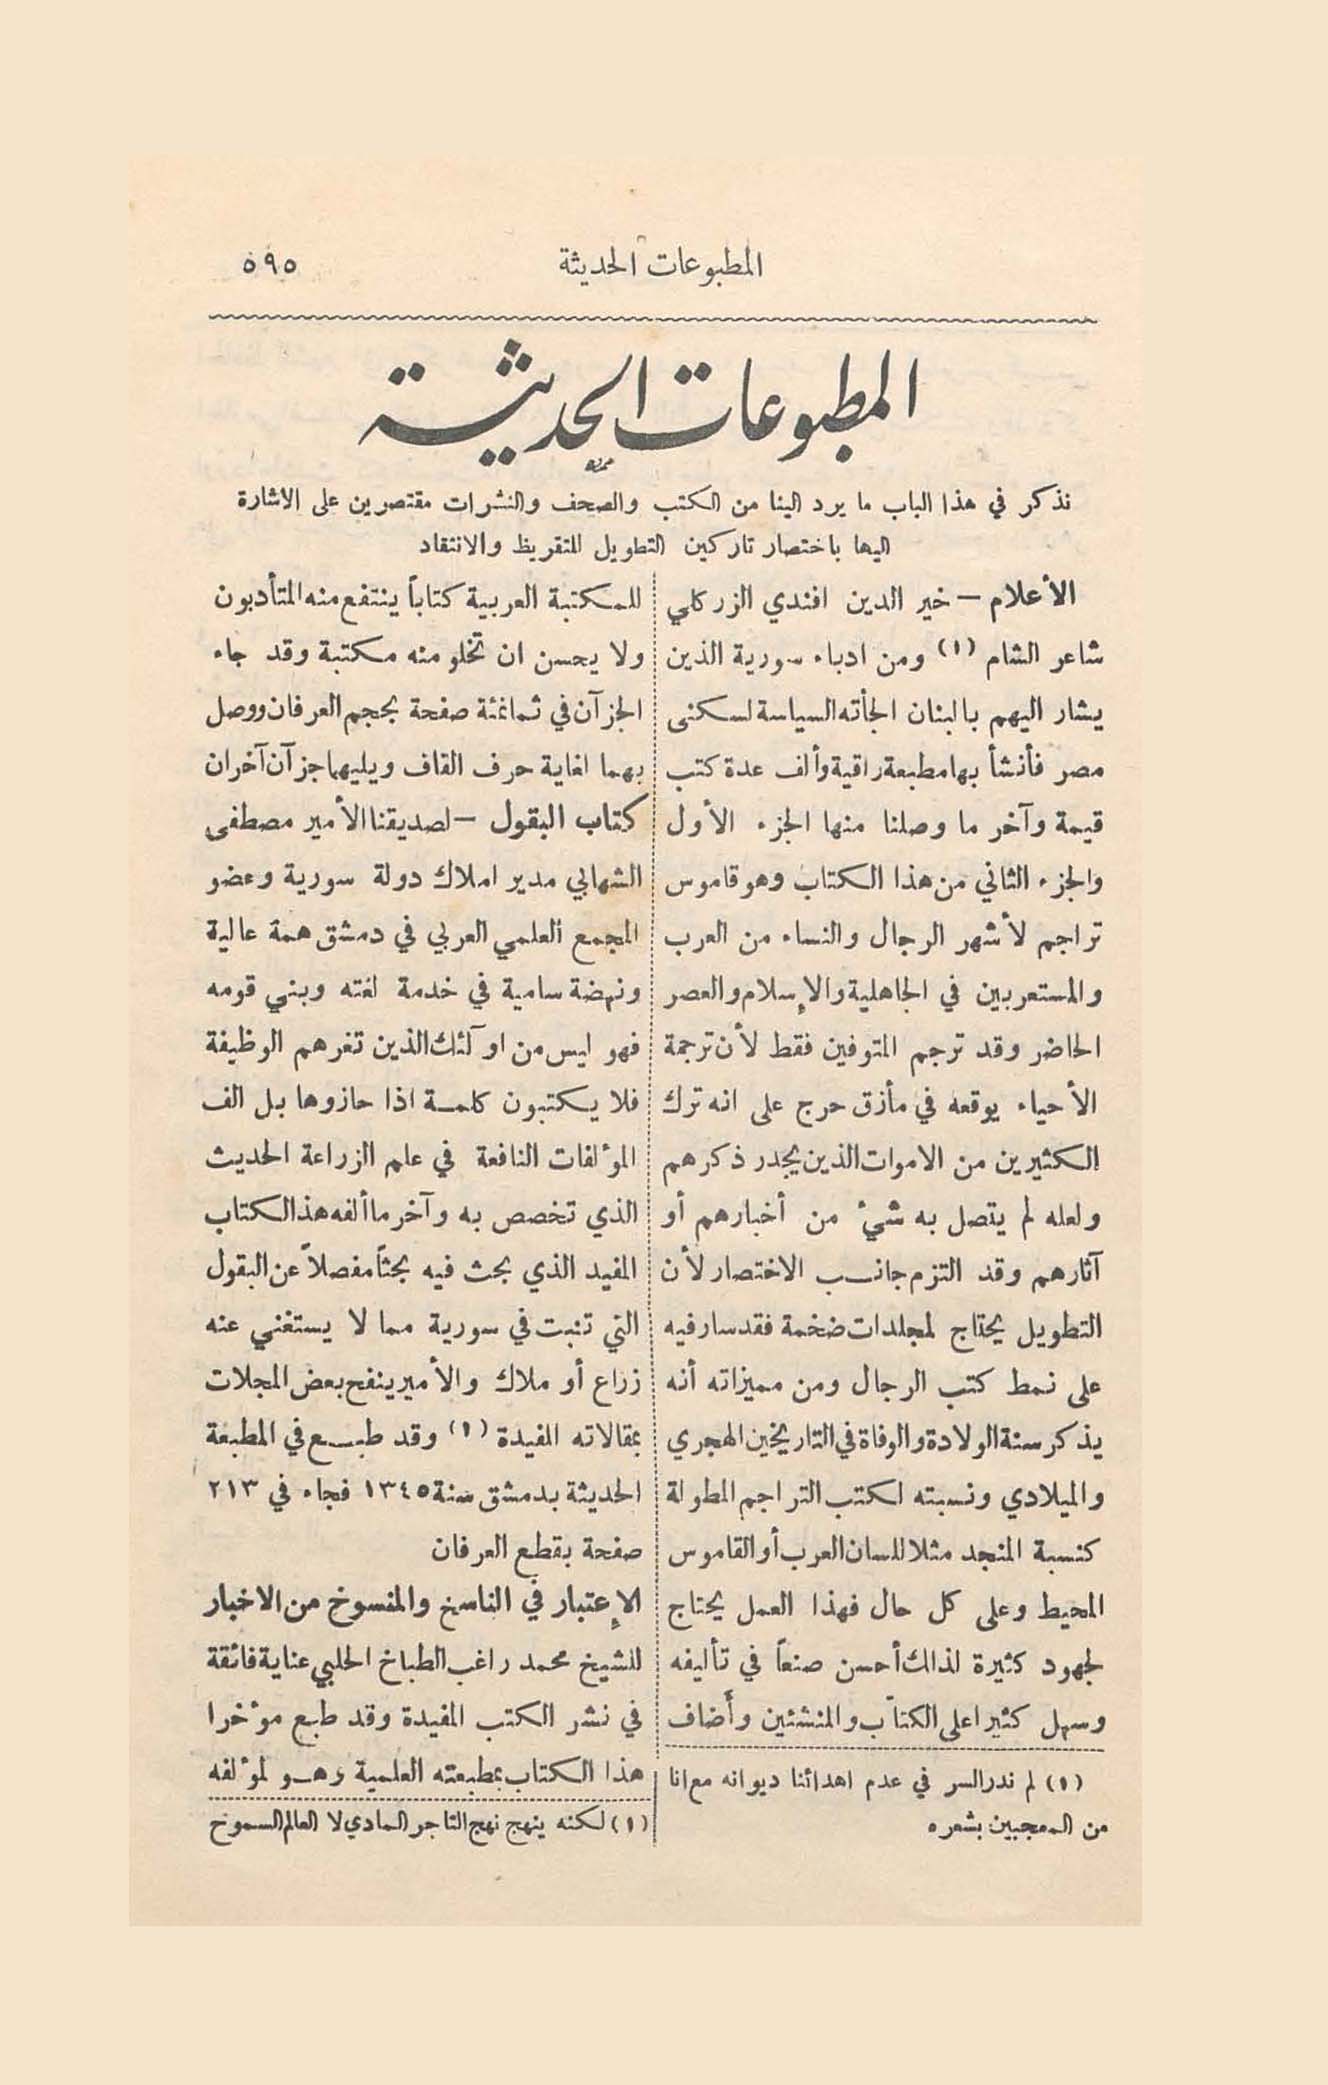 المطبوعات الحديثة
٥٩٥
المطبوعات الحديثة
نذكر في هذا الباب ما يرد الينا من الكتب والصحف والنشرات مقتصرين على الاشارة
اليها باختصار تاركين التطويل للتقريظ والانتقاد
الأعلام — خير الدين افندي الزركلي
شاعر الشام (١) ومن ادباء سورية الذين
يشار اليهم بالبنان الجأته السياسة لسكنى
مصر فأنشأ بها مطبعة راقية وألف عدة كتب
قيمة وآخر ما وصلنا منها الجزء الأول
والجزء الثاني من هذا الكتاب وهو قاموس
تراجم لأشهر الرجال والنساء من العرب
والمستعربين في الجاهلية والإسلام والعصر
الحاضر وقد ترجم المتوفين فقط لأن ترجمة
الأحياء يوقعه في مأزق حرج على انه ترك
الكثيرين من الاموات الذين يجدر ذكرهم
ولعله لم يتصل به شيء من أخبارهم أو
آثارهم وقد التزم جانب الاختصار لأن
التطويل يحتاج لمجلدات ضخمة فقد سار فيه
على نمط كتب الرجال ومن مميزاته أنه
يذكر سنة الولادة والوفاة في التاريخين الهجري
والميلادي ونسبته لكتب التراجم المطولة
كنسبة المنجد مثلا للسان العرب أو القاموس
المحيط وعلى كل حال فهذا العمل يحتاج
لجهود كثيرة لذلك أحسن صنعاً في تأليفه
وسهل كثيرا على الكتاّب والمنشئين وأضاف
(١) لم ندر السر في عدم اهدائنا ديوانه مع انا
من المعجبين بشعره
للمكتبة العربية كتاباً ينتفع منه المتأدبون
ولا يحسن ان تخلو منه مكتبة وقد جاء
الجزآن في ثمانمئة صفحة بحجم العرفان ووصل
بهما لغاية حرف القاف ويليهما جزآن آخران
كتاب البقول — لصديقنا الأمير مصطفى
الشهابي مدير املاك دولة سورية وعضو
المجمع العلمي العربي في دمشق همة عالية
ونهضة سامية في خدمة لغته وبني قومه
فهو ليس من اولئك الذين تغرهم الوظيفة
فلا يكتبون كلمة اذا حازوها بل الف
المؤلفات النافعة في علم الزراعة الحديث
الذي تخصص به وآخر ما ألفه هذا الكتاب
المفيد الذي بحث فيه بحثاً مفصلاً عن البقول
التي تنبت في سورية مما لا يستغني عنه
زراع أو ملاك والأمير ينفح بعض المجلات
بمقالاته المفيدة (١) وقد طبع في المطبعة
الحديثة بدمشق سنة ١٣٤٥ فجاء في ٢١٣
صفحة بقطع العرفان
الإعتبار في الناسخ والمنسوخ من الاخبار
للشيخ محمد راغب الطباخ الحلبي عناية فائقة
في نشر الكتب المفيدة وقد طبع مؤخرا
هذا الكتاب بمطبعته العلمية وهو لمؤلفه
(١) لكنه ينهج نهج التاجر المادي لا العالم السموح